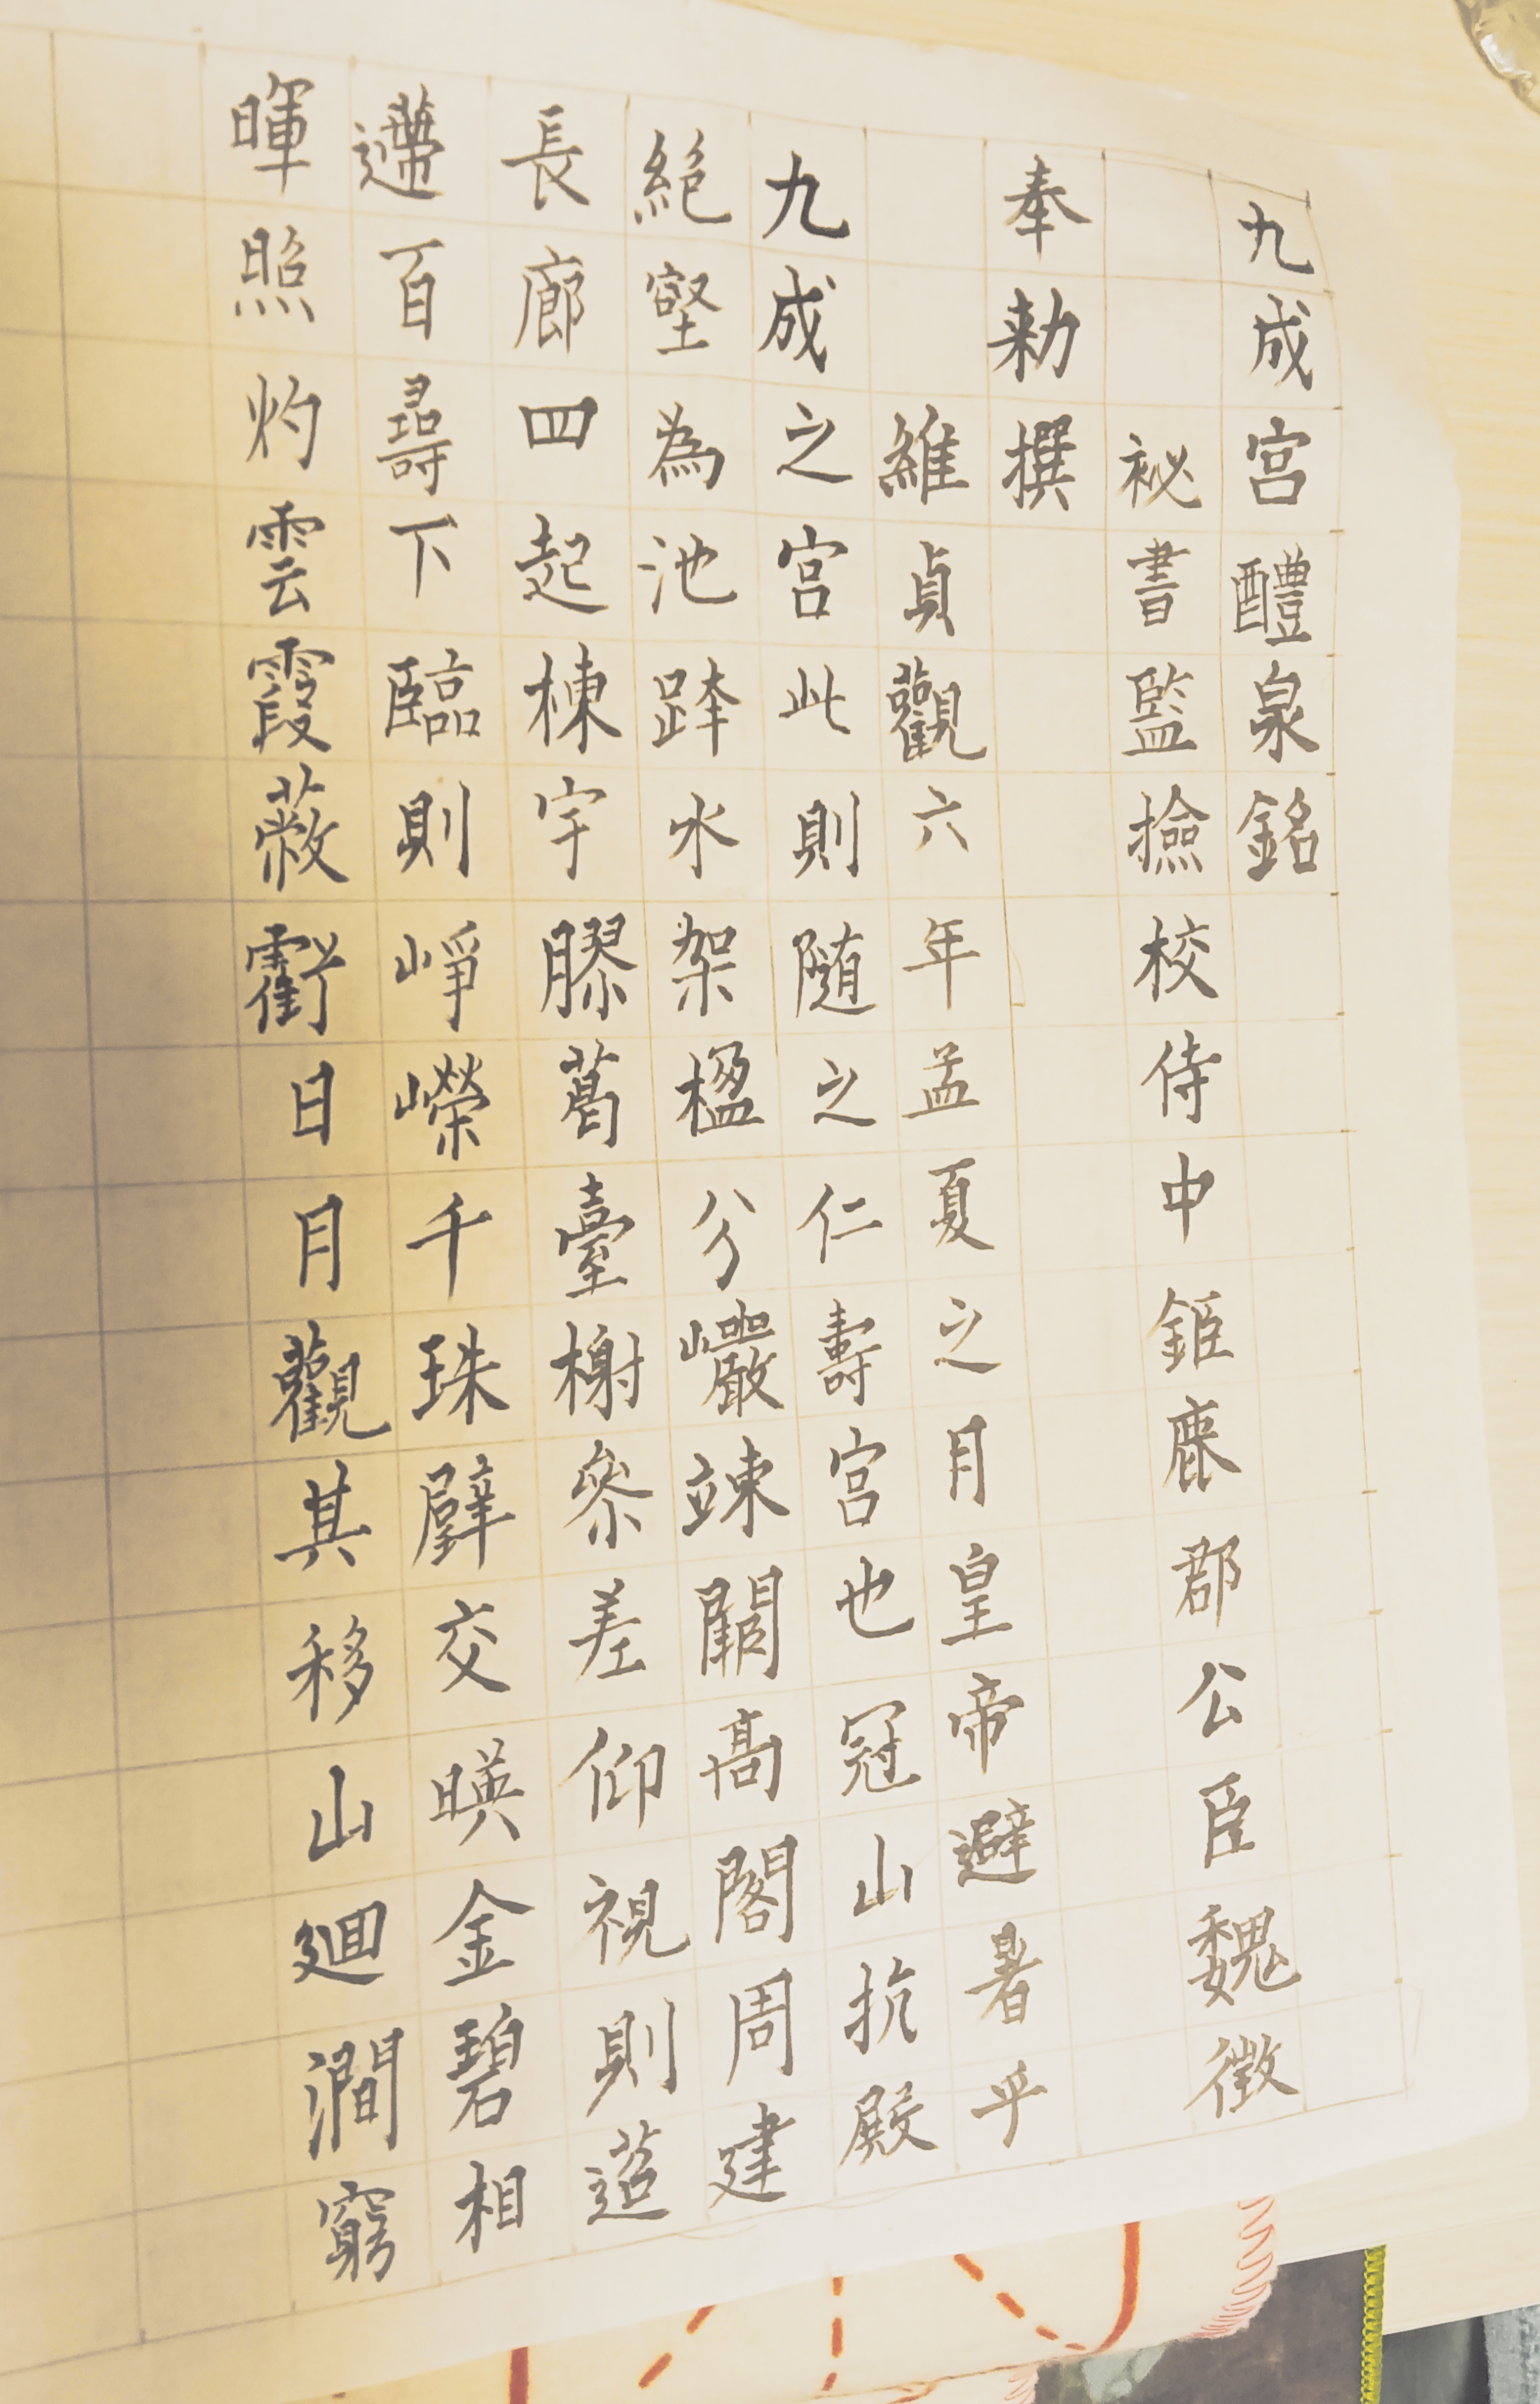 九成宮醴泉銘
祕書監撿校侍中鉅鹿郡公臣魏徵
奉勅撰
維貞觀六年孟夏之月皇帝避暑乎
九成之宮此則隨之仁壽宮也冠山抗殿
絕壑為池跨水架楹分巖竦闕高閣周建
長廊四起棟宇膠葛臺榭參差仰視則迢
遰百尋下臨則崢嶸千珠璧交暎金碧相
暉照灼雲霞蔽虧日月觀其移山迴澗窮